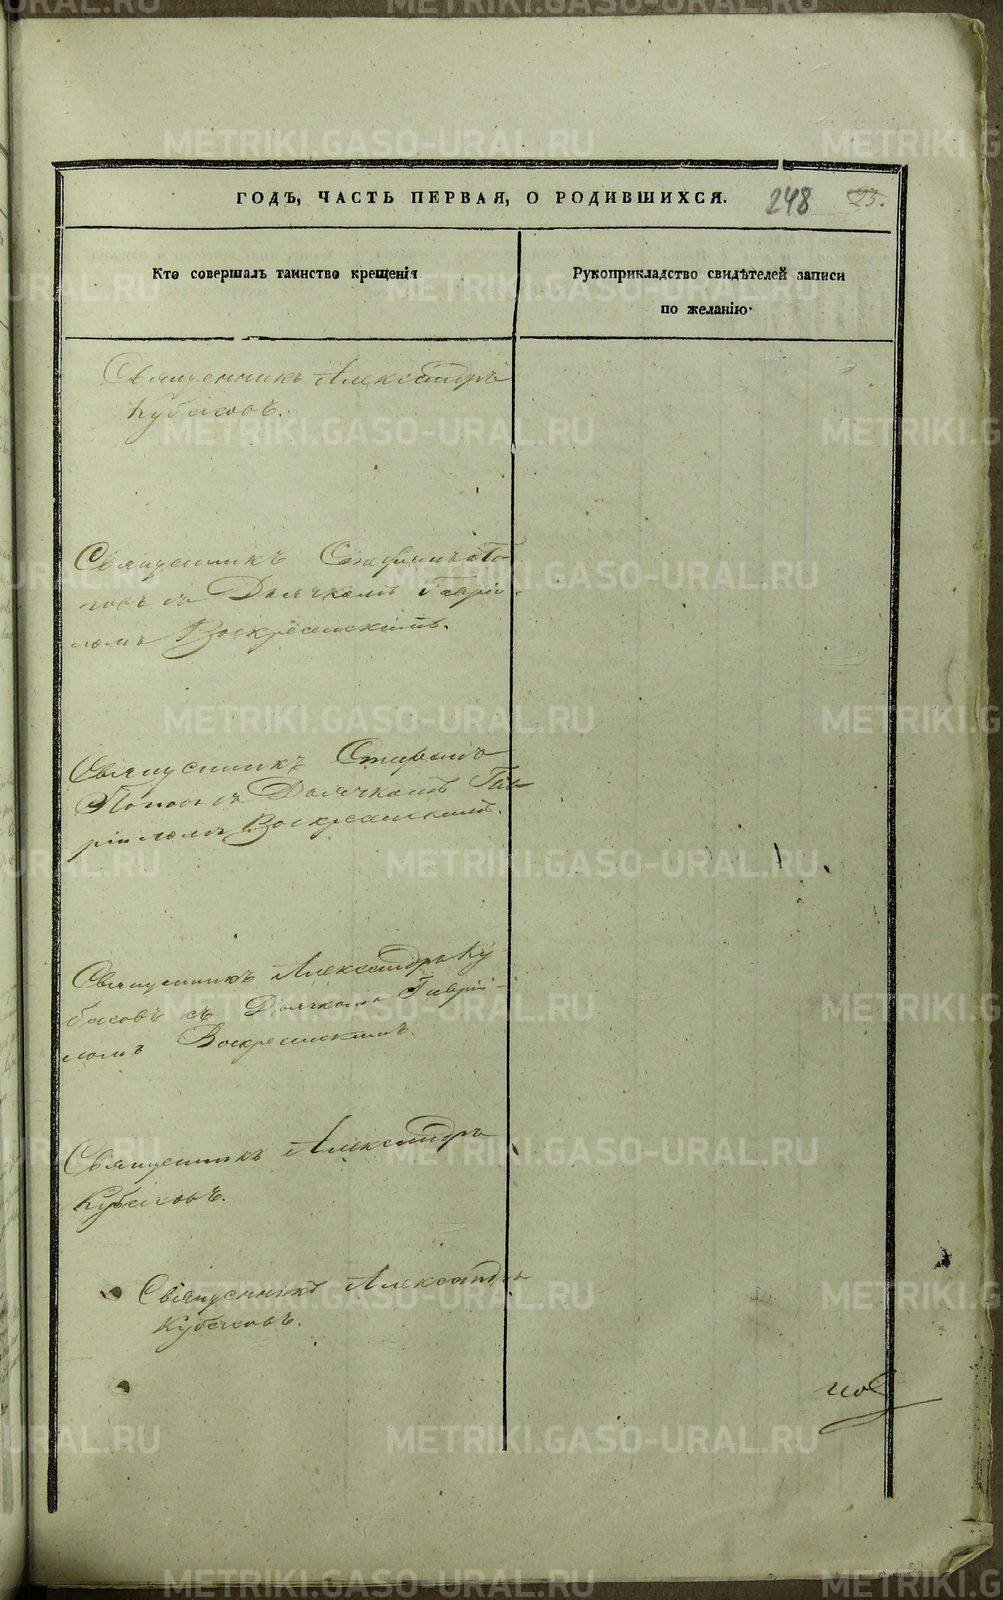 ГОДЪ, ЧАСТЬ ПЕРВАЯ, О РОДИВШИХСЯ. 248 23.
Кто совершалъ таинство крещенія
Рукоприкладство свидѣтелей записи
по желанію.
Священникъ Александръ
Кубасовъ.
Священникъ По-
повъ съ Дьячкомъ Гаврі-
ломъ Воскресенскимъ.
Священникъ Стефанъ
Поповъ съ Дьячкомъ Гав-
ріиломъ Воскресенскимъ.
Священникъ Александръ Ку
басовъ съ Дьячкомъ Гаврі-
ломъ Воскресенскимъ.
Священникъ Александръ
Кубасовъ.
Священникъ Александръ
Кубасовъ.
METRIKI.GASO-URAL.RU